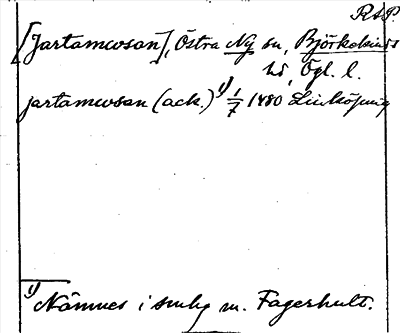 RAP.
[Jartamosan], Östra Ny sn, Björkekinds
hd, Ögl. l.
jartamosan (ack.) 1) 1/7 1480 Linköping
1) Nämnes i smhg m. Fagerhult.